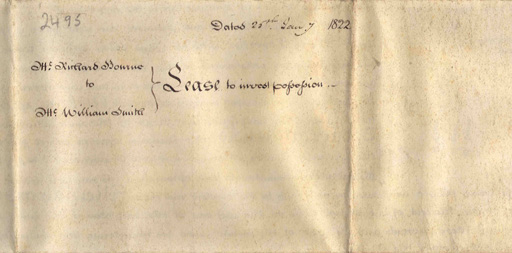 2493
Dated 25th Jany 1822
Mr. Richard Bourne
to
Lease to invest possession ..
Mr. William Smith